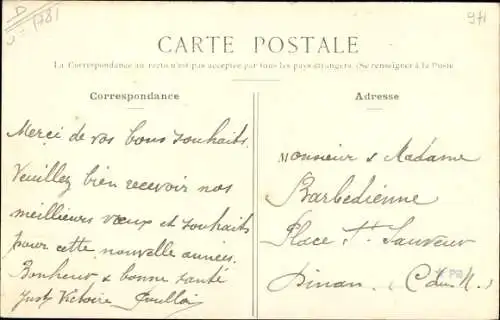 1781
941
CARTE POSTALE
La Correspondance au recto n'est pas acceptée par tous les pays étrangers. (Se renseigner à la Poste
Correspondance
Adresse
Merci de vos bons souhaits.
Veuillez bien recevoir nos
meilleurs vœux et souhaits
pour cette nouvelle année.
Bonheur & bonne santé
Just Victoire
Monsieur & Madame
Barbedienne
Place St Sauveur
Dinan. C du N.